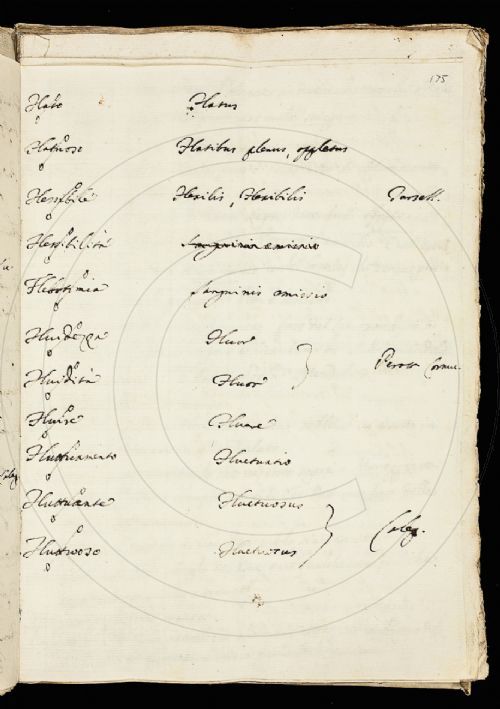 175
Flato Flatus
Flatuoso Flatibus plenus, oppletus
Flessibile Flexilis, Flexibilis
Flessibilità Sanguinis emissio
Flebotomia Sanguinis emissio
Fluidezza Fluor
Fluidità Fluor
Fluire Fluere
Fluttuamento Fluctuatio
Fluttuante Fluctuosus
Fluttuoso Fluctuosus